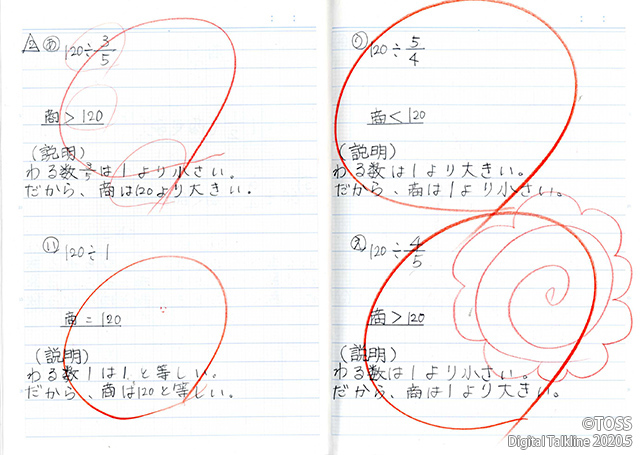 2 あ 120÷3/5
商 > 120
(説明)
わる数3/5は1より小さい。
だから、商は120より大きい。
い 120÷1
商 = 120
(説明)
わる数1は1と等しい。
だから、商は120と等しい。
う 120÷5/4
商 < 120
(説明)
わる数は1より大きい。
だから、商は1より小さい。
え 120÷4/5
商 > 120
(説明)
わる数は1より小さい。
だから、商は1より大きい。
©TOSS
Digital Talkline 2020.5